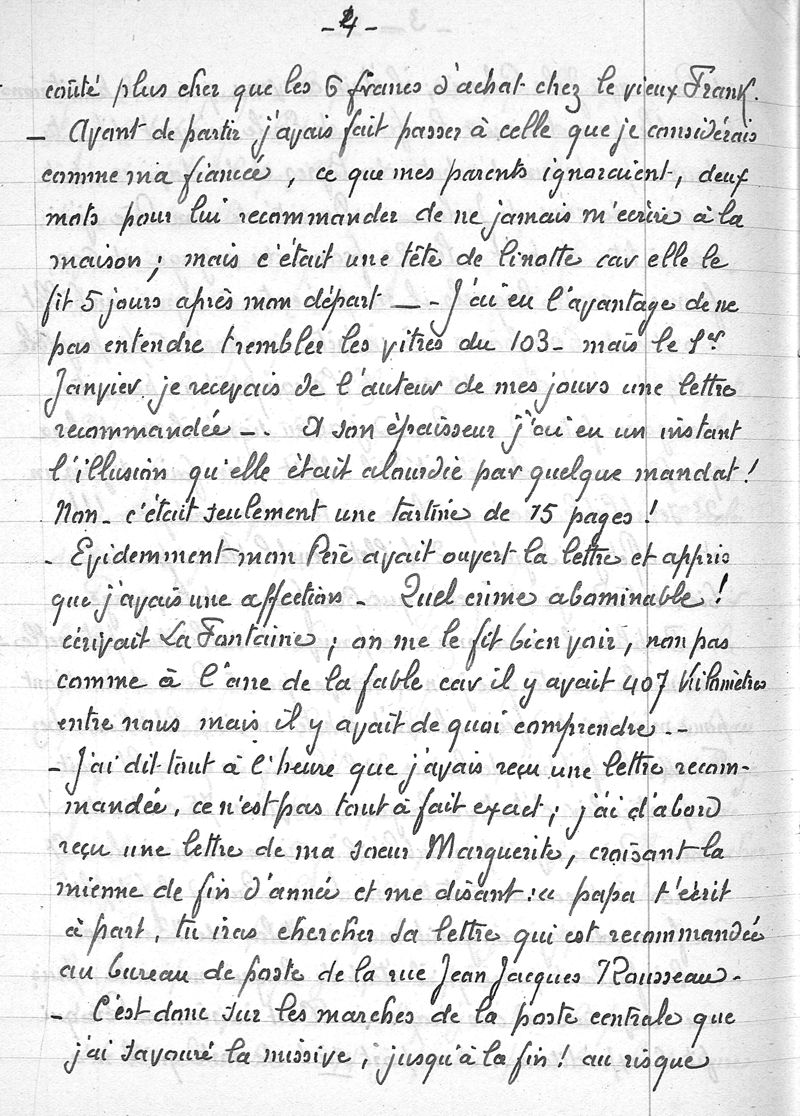 - 4 -
coûté plus cher que les 6 francs d'achat chez le vieux Frank.
_ Avant de partir j'avais fait passer à celle que je considérais
comme ma fiancée, ce que mes parents ignoraient, deux
mots pour lui recommander de ne jamais m'écrire à la
maison ; mais c'était une tête de linotte car elle le
fit 5 jours après mon départ _ - J'ai eu l'avantage de ne
pas entendre trembler les vitres du 103 - mais le 1er
Janvier je recevais de l'auteur de mes jours une lettre
recommandée -. A son épaisseur j'ai eu un instant
l'illusion qu'elle était alourdie par quelque mandat !
Non - c'était seulement une tartine de 15 pages !
- Evidemment mon Père avait ouvert la lettre et appris
que j'avais une affection - Quel crime abominable !
écrivait La Fontaine ; on me le fit bien voir, non pas
comme à l'ane de la fable car il y avait 407 Kilomètres
entre nous mais il y avait de quoi comprendre . -
- J'ai dit tout à l'heure que j'avais reçu une lettre recom-
mandée, ce n'est pas tout à fait exact ; j'ai d'abord
reçu une lettre de ma soeur Marguerite, croisant la
mienne de fin d'année et me disant : « papa t'écrit
à part, tu iras chercher sa lettre qui est recommandée
au bureau de poste de la rue Jean Jacques Rousseau -
- C'est donc sur les marches de la poste centrale que
j'ai savouré la missive, jusqu'à la fin ! au risque